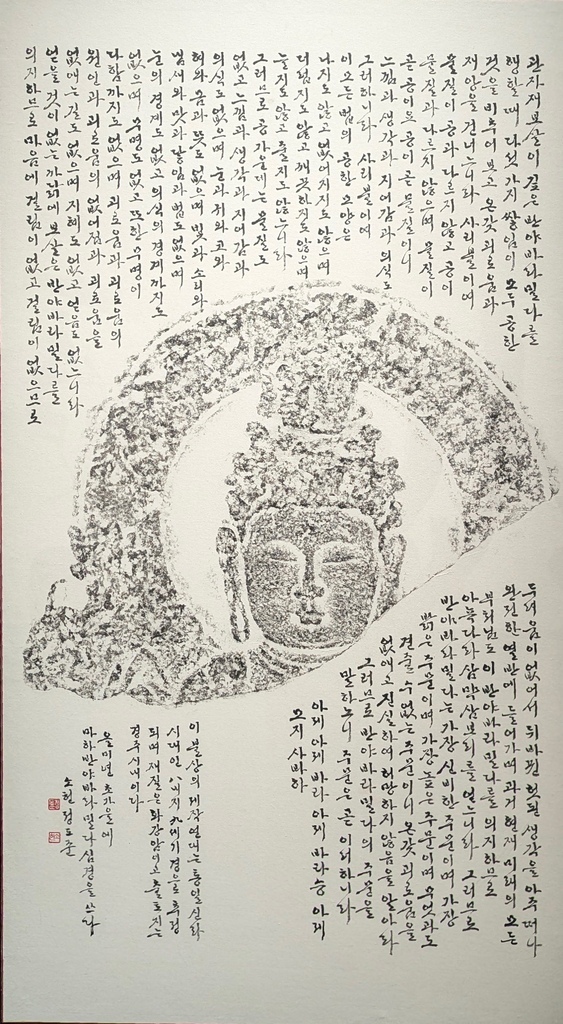 관자재보살이 깊은 반야바라밀다를
행할 때 다섯 가지 쌓임이 모두 공한
것을 비추어 보고 온갖 괴로움과
재앙을 건너느니라 사리불이여
물질이 공과 다르지 않고 공이
물질과 다르지 않으며 물질이
곧 공이요 공이 곧 물질이니
느낌과 생각과 지어감과 의식도
그러하니라 사리불이여
이 모든 법의 공한 모양은
나지도 않고 없어지지도 않으며
더럽지도 않고 깨끗하지도 않으며
늘지도 않고 줄지도 않느니라
그러므로 공 가운데는 물질도
없고 느낌과 생각과 지어감과
의식도 없으며 눈과 귀와 코와
혀와 몸과 뜻도 없으며 빛과 소리와
냄새와 맛과 닿임과 법도 없으며
눈의 경계도 없고 의식의 경계까지도
없으며 무명도 없고 또한 무명이
다함까지도 없으며 괴로움과 괴로움의
원인과 괴로움의 없어짐과 괴로움을
없애는 길도 없으며 지혜도 없고 얻음도 없느니라
얻을 것이 없는 까닭에 보살은 반야바라밀다를
의지하므로 마음에 걸림이 없고 걸림이 없으므로
두려움이 없어서 뒤바뀐 헛된 생각을 아주 떠나
완전한 열반에 들어가며 과거 현재 미래의 모든
부처님도 이 반야바라밀다를 의지하므로
아뇩다라삼막삼보리를 얻느니라 그러므로
반야바라밀다는 가장 신비한 주문이며 가장
밝은 주문이며 가장 높은 주문이며 무엇과도
견줄 수 없는 주문이니 온갖 괴로움을
없애고 진실하여 허망하지 않음을 알아라
그러므로 반야바라밀다의 주문을
말하노니 주문은 곧 이러하니라
아제 아제 바라 아제 바라승 아제
모지 사바하
이 불상의 제작 연대는 통일신라
시대인 八세기 九세기 경으로 추정
되며 재질은 화강암이고 출토지는
경주시내이다
을미년 초가을에
마하반야바라밀다심경을 쓰다
소헌 정도준